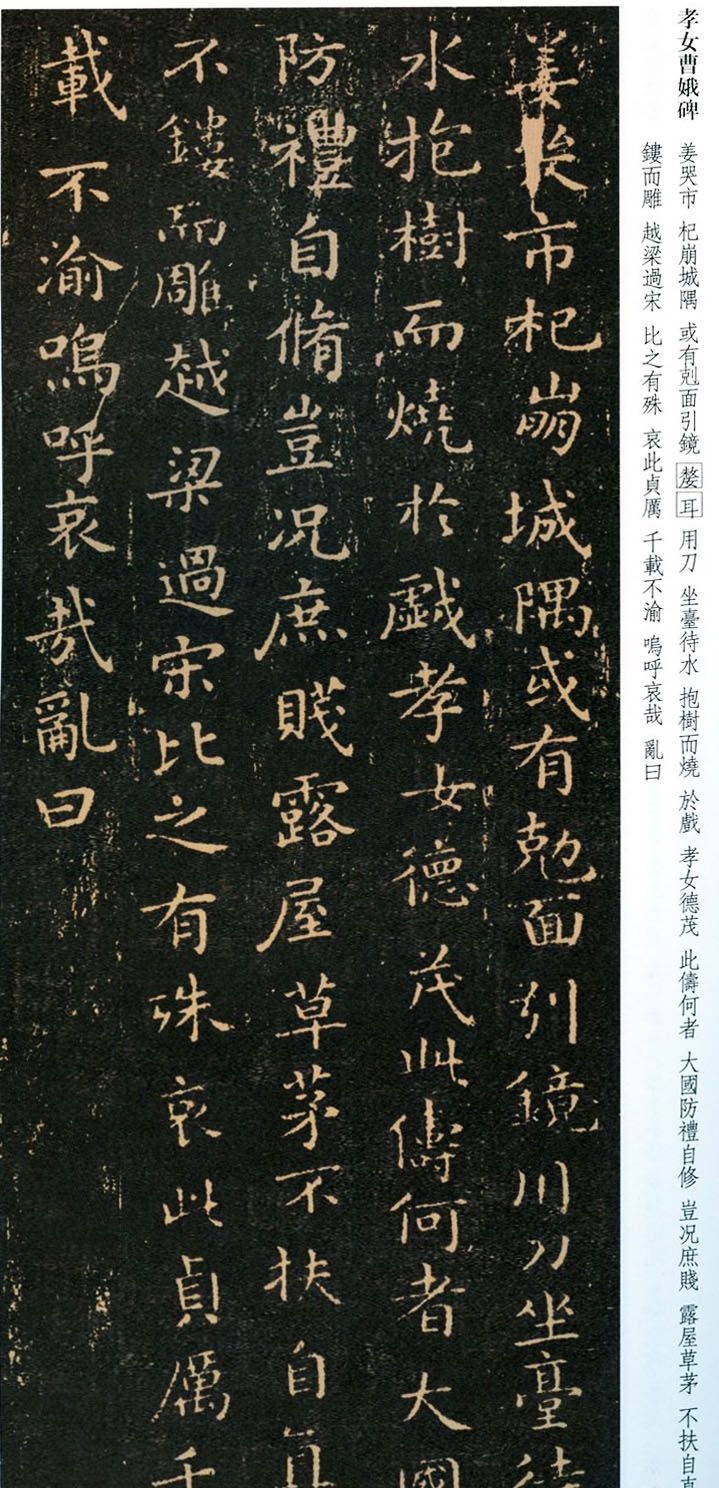 孝女曹娥碑 姜哭市 杞崩城隅 或有剋面引鏡 嫠耳 用刀 坐臺待水 抱樹而燒 於戲 孝女德茂 此儔何者 大國防禮自修 豈況庶賤 露屋草茅 不扶自直
鏤而雕 越梁過宋 比之有殊 哀此貞厲 千載不渝 嗚呼哀哉 亂曰
姜哭市杞崩城隅或有剋面引鏡川刀坐臺待
水抱樹而燒於戲孝女德茂此儔何者大國
防禮自脩豈況庶賤露屋草茅不扶自直
不鏤而雕越梁過宋比之有殊哀此貞厲千
載不渝嗚呼哀哉亂曰